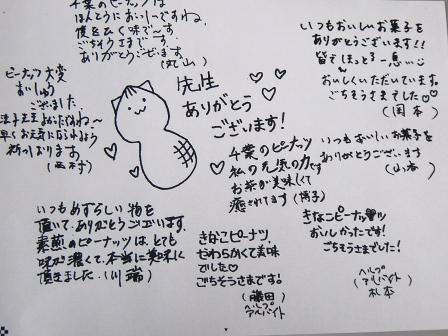 千葉のピーナツは
ほんとうにおいしいですね。
僕もひく味で〜す。
ごちそうさまで〜す。
ありがとうございます。
(丸山)
いつもおいしいお菓子を
ありがとうございます!!
皆でほっと一息…
おいしくいただいています。
ごちそうさまでした♡
(岡本)
ピーナッツ大変
おいしゅう
ございました。
早くお元気になられますよう
祈っております。
(西村)
先生
ありがとう
ございます!
千葉のピーナッツ
私の元気の力です
お茶が美味しくて
癒されてます(博子)
いつもおいしいお菓子を
ありがとうございます
(山本)
いつもめずらしい物を
頂いて、ありがとうございます。
素煎のピーナッツは、とても
味が濃くて、本当に美味しく
頂きました。(川端)
きなこピーナツ、
やわらかくて美味
でした♡
ごちそうさまです。
(藤田)
ヘルプ
アルバイト
きなこピーナッツ
おいしかったです!
ごちそうさまでした!
ヘルプ
(アルバイト)
札本